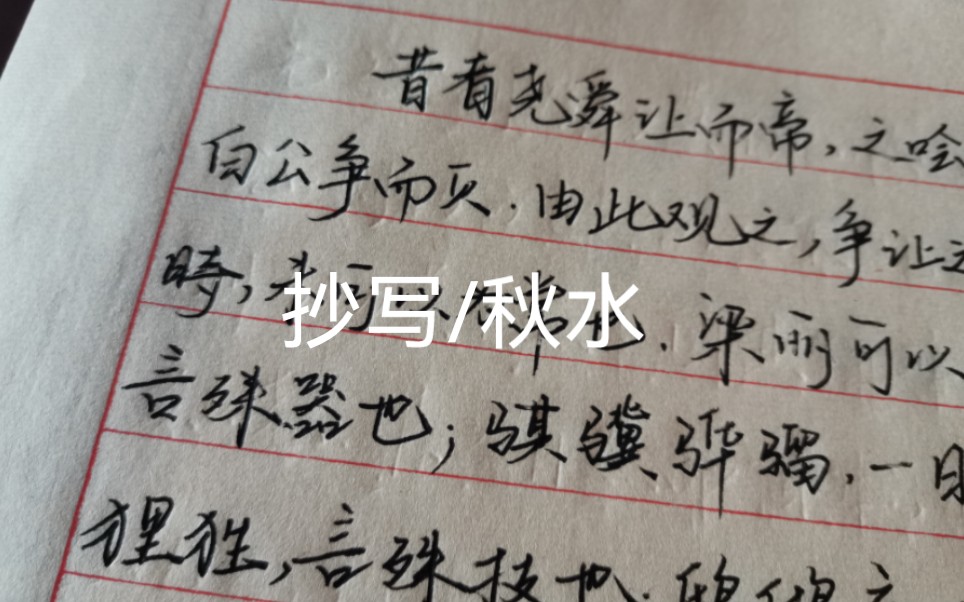 昔者尧舜让而帝,之哙
白公争而灭.由此观之,争让之
時,常也.梁丽可以
抄写/秋水
言殊器也;骐骥骅骝,一日
狸狌,言殊技也.